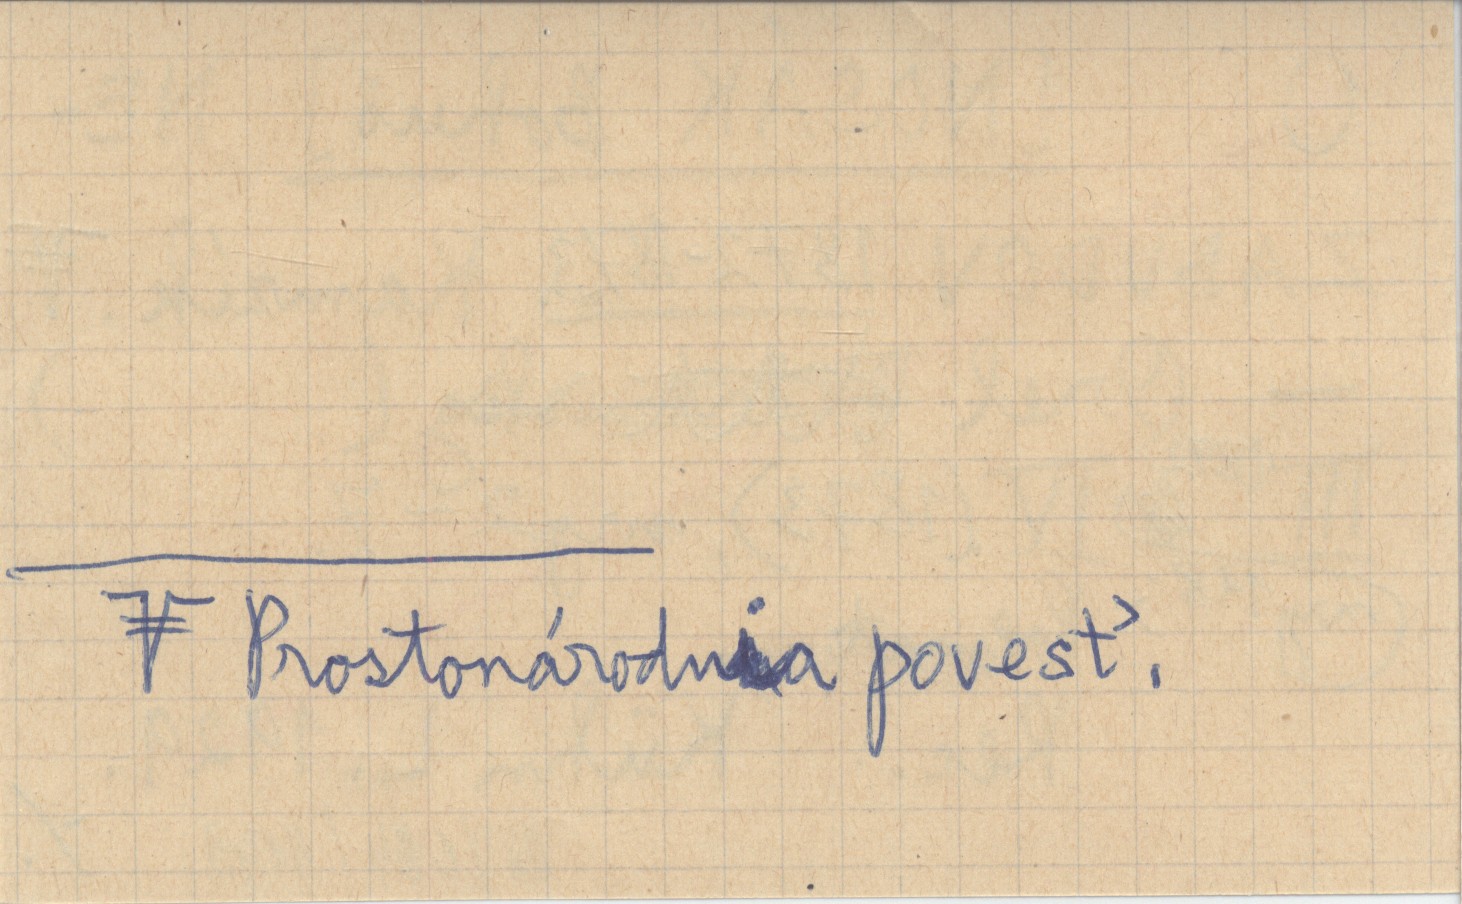 Prostonárodnia povesť.